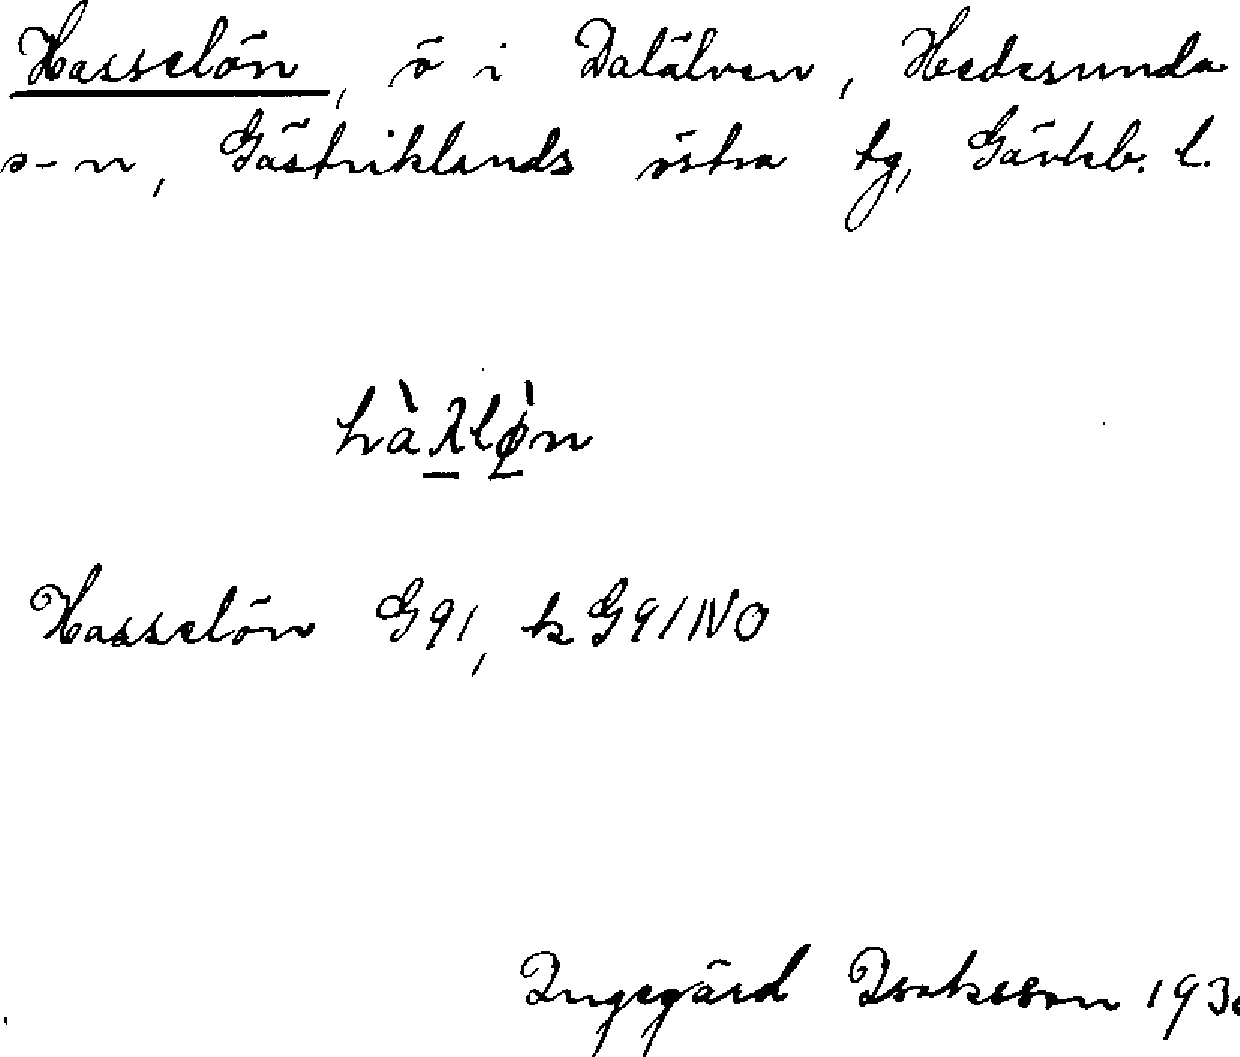 Hasselön, ö i Dalälven, Hedesunda
s-n, Gästriklands östra tg, Gävleb. l.
Hasselön G91, k G91NO
Ingegärd Isaksson